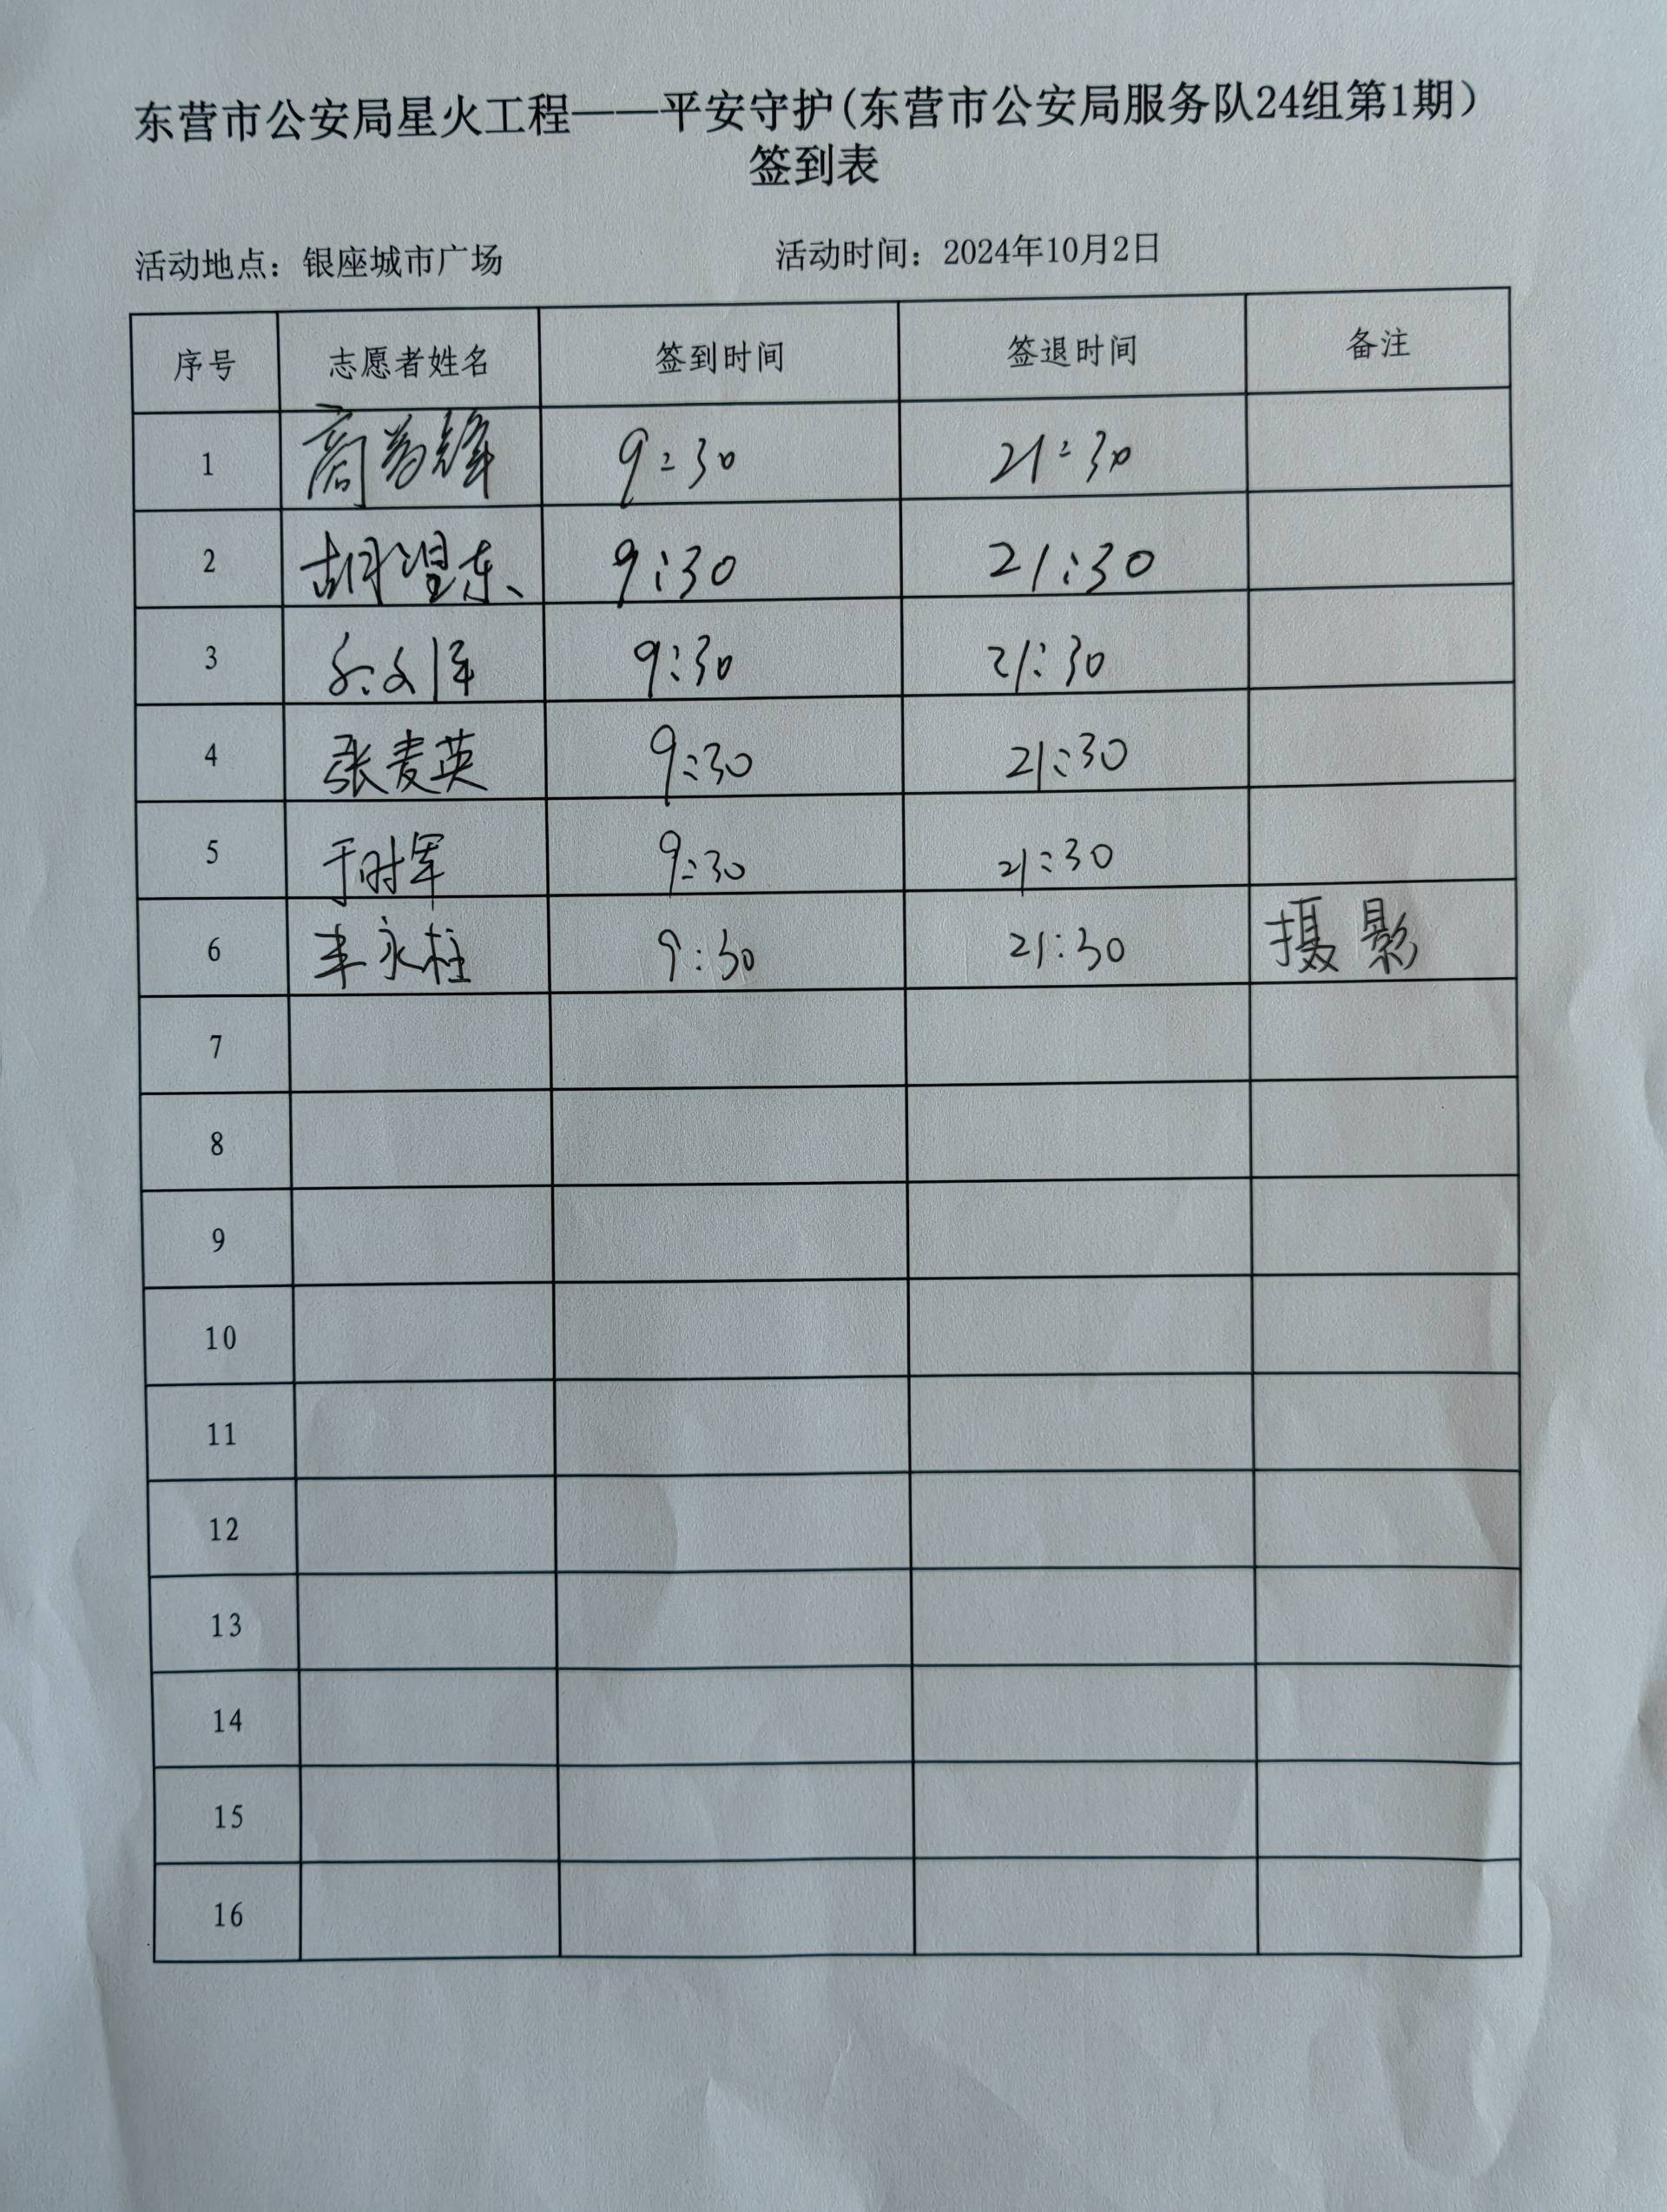 东营市公安局星火工程——平安守护(东营市公安局服务队24组第1期）
签到表
活动地点：银座城市广场 活动时间：2024年10月2日
序号 志愿者姓名 签到时间 签退时间 备注
1 9:30 21:30
2 胡湿东 9:30 21:30
3 9:30 21:30
4 张麦英 9:30 21:30
5 于时军 9:30 21:30
6 丰永柱 9:30 21:30 摄影
7
8
9
10
11
12
13
14
15
16